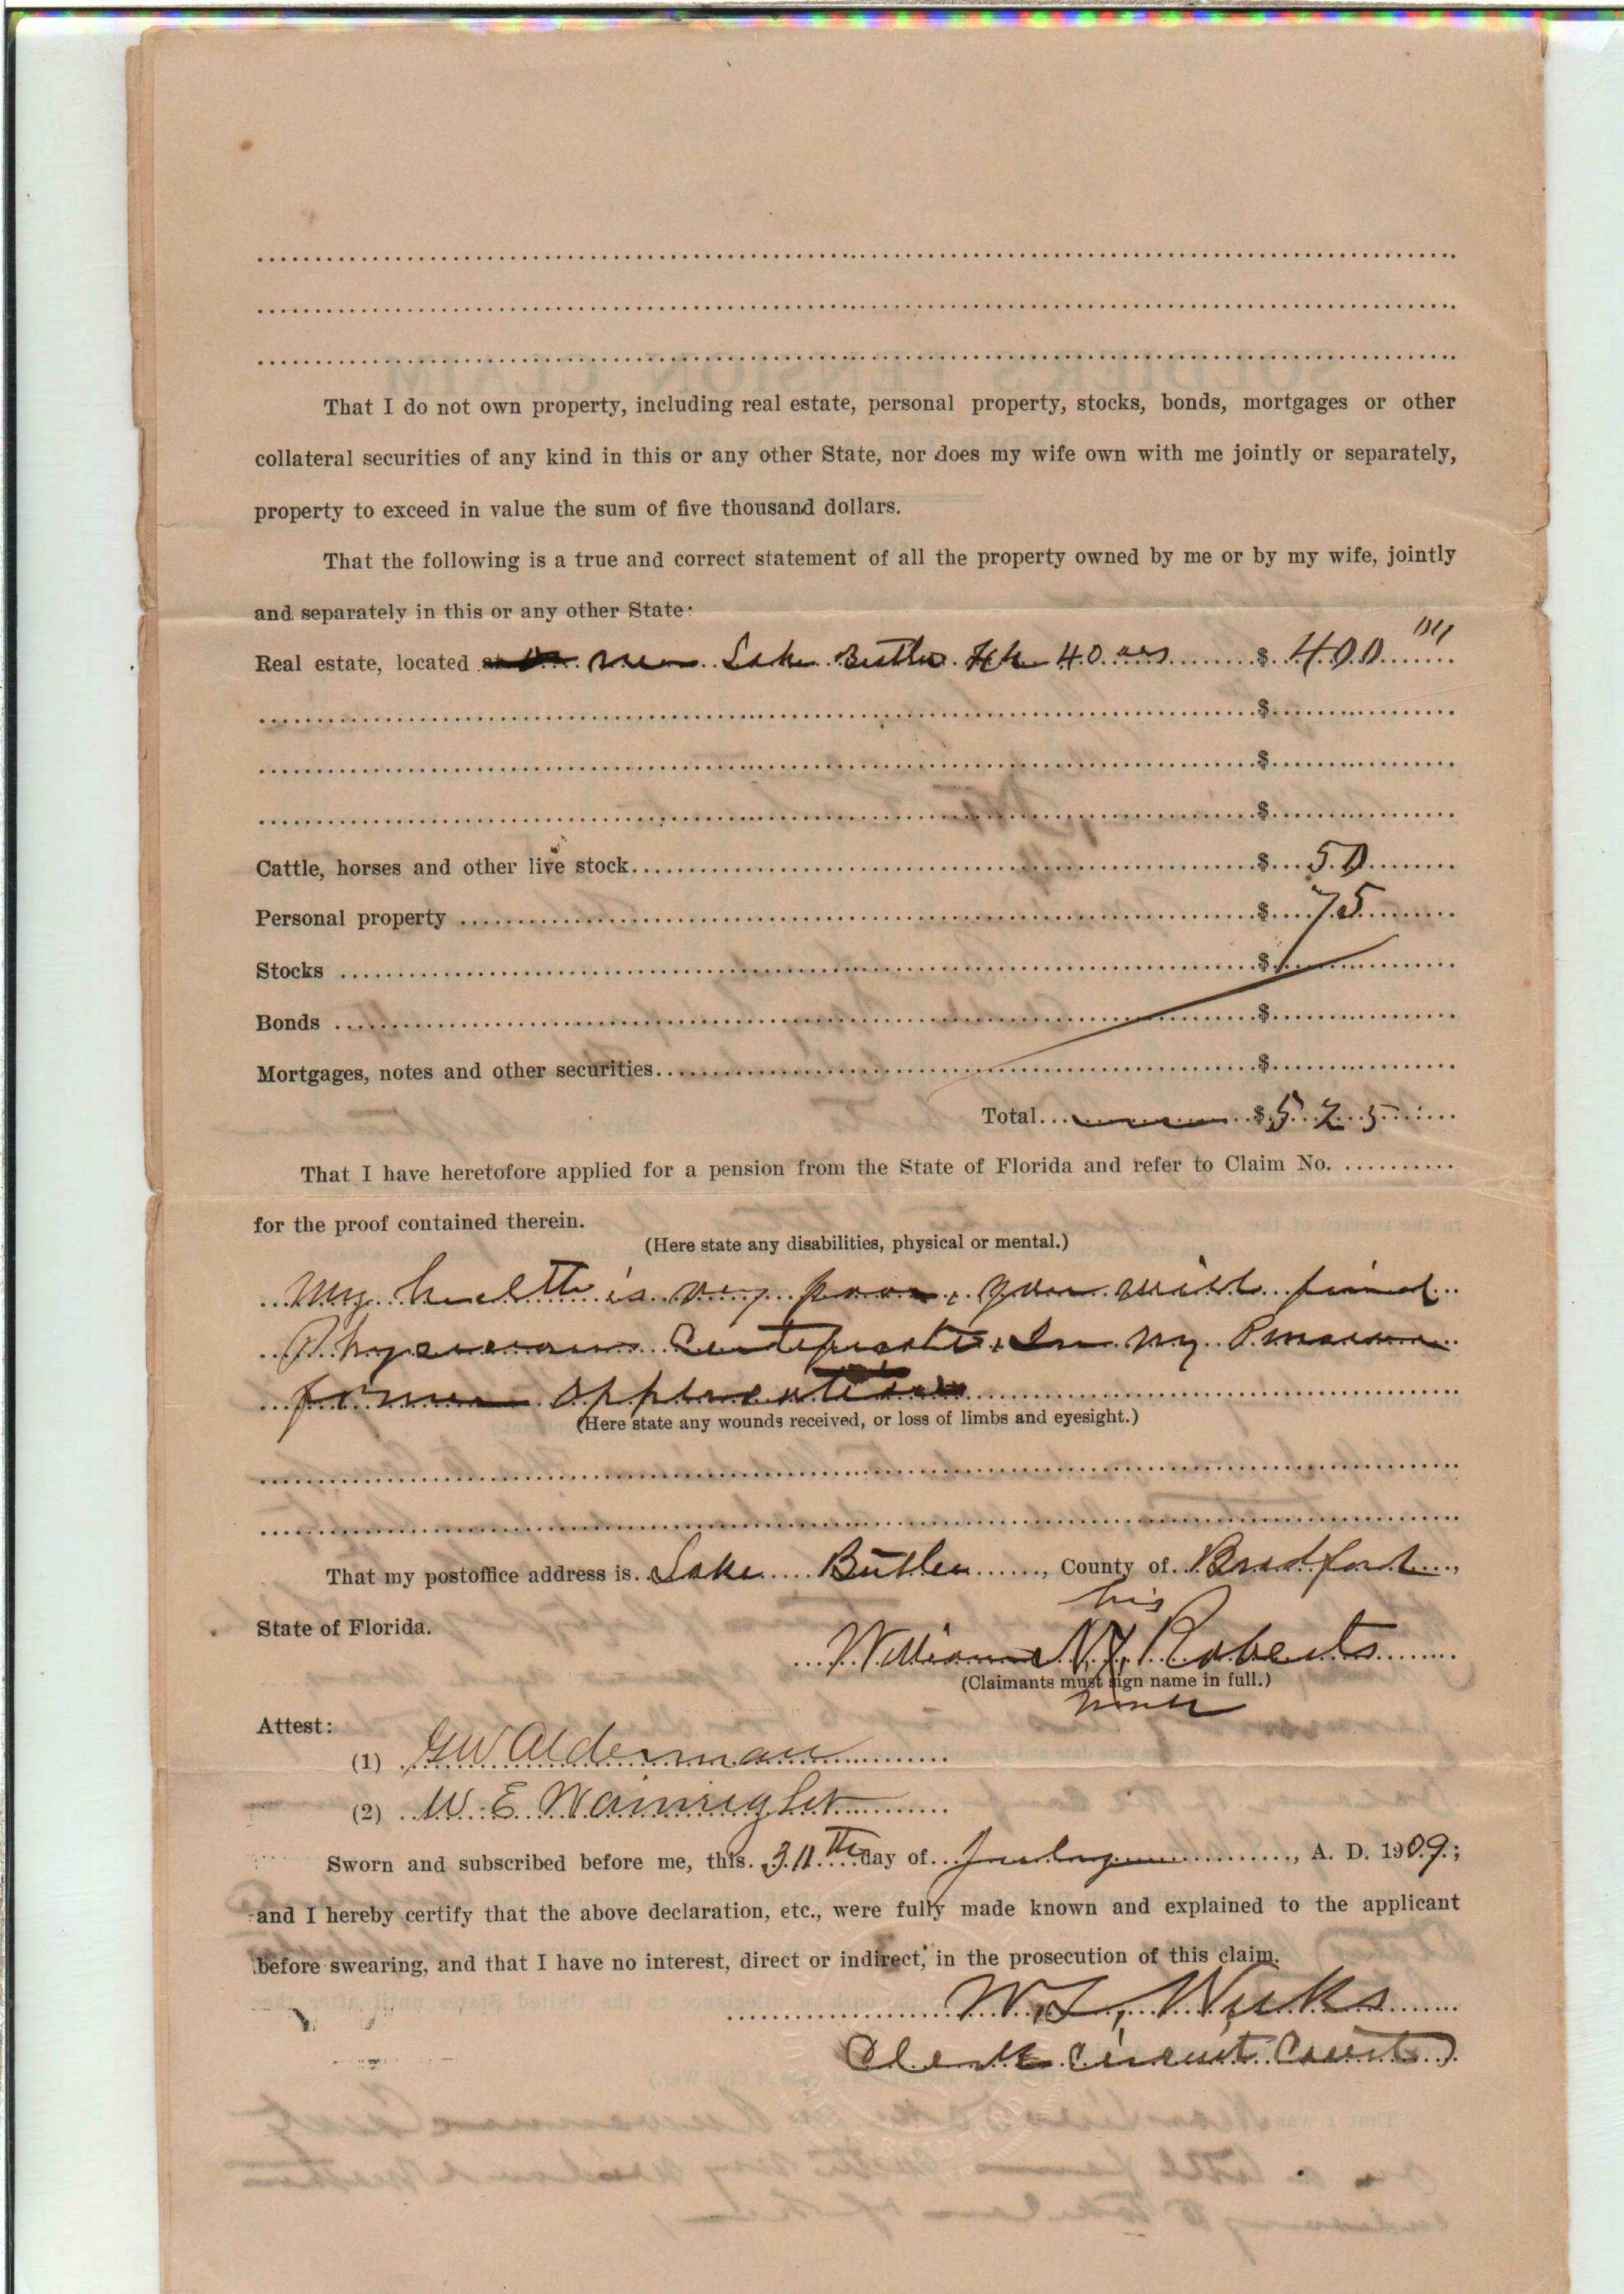 That I do not own property, including real estate, personal property, stocks, bonds, mortgages or other
collateral securities of any kind in this or any other State, nor does my wife own with me jointly or separately,
property to exceed in value the sum of five thousand dollars.
That the following is a true and correct statement of all the property owned by me or by my wife, jointly
and separately in this or any other State:
Real estate, located near Lake Butler Fla 40 acrs $ 400
$
$
$
Cattle, horses and other live stock $ 50
Personal property $ 75
Stocks $
Bonds $
Mortgages, notes and other securities $
Total $ 525
That I have heretofore applied for a pension from the State of Florida and refer to Claim No.
for the proof contained therein.
(Here state any disabilities, physical or mental.)
My health is very poor, you will find
Physicians Certificate, In my
former application
(Here state any wounds received, or loss of limbs and eyesight.)
That my postoffice address is Lake Butler, County of Bradford,
his
State of Florida.
William N. X Roberts
(Claimants must sign name in full.)
mark
Attest:
(1) G W Alderman
(2) W. E. Wainright
Sworn and subscribed before me, this day of July, A. D. 1909;
and I hereby certify that the above declaration, etc., were fully made known and explained to the applicant
before swearing, and that I have no interest, direct or indirect, in the prosecution of this claim.
Weeks
Clerk Circuit Court